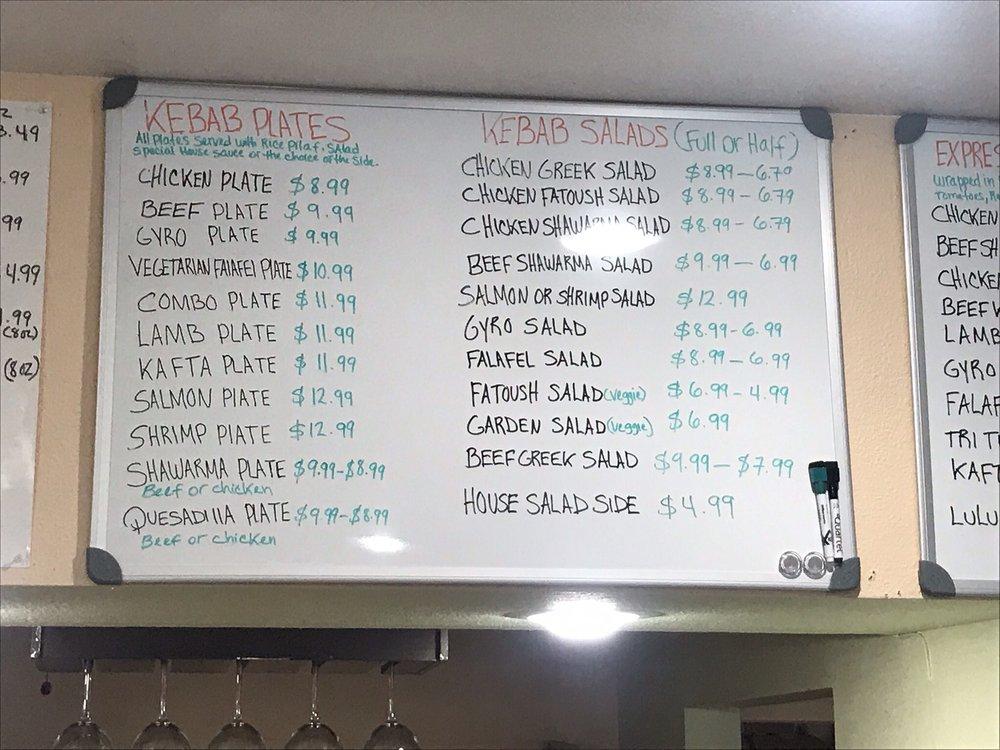 3.49
.99
99
4.99
1.99
(8oz)
(8oz)
KEBAB PLATES
All Plates Served with Rice Pilaf, Salad
Special House sauce or the choice of the Side.
CHICKEN PLATE $8.99
BEEF PLATE $9.99
GYRO PLATE $9.99
VEGETARIAN FAlAFEl PlATE $10.99
COMBO PLATE $11.99
LAMB PLATE $11.99
KAFTA PLATE $11.99
SALMON PlATE $12.99
SHRIMP PlATE $12.99
SHAWARMA PLATE $9.99-$8.99
Beef or chicken
QUESADIllA PLATE $9.99-$8.99
Beef or chicken
KEBAB SALADS (Full Or Half)
CHICKEN GREEK SALAD $8.99-6.79
CHICKEN FATOUSH SALAD $8.99-6.79
CHICKEN SHAWARMA SALAD $8.99-6.79
BEEF SHAWARMA SALAD $9.99-6.99
SALMON OR SHRIMP SALAD $12.99
GYRO SALAD $8.99-6.99
FALAFEL SALAD $8.99-6.99
FATOUSH SALAD (veggie) $6.99-4.99
GARDEN SALAD (veggie) $6.99
BEEF GREEK SALAD $9.99-$7.99
HOUSE SALAD SIDE $4.99
Quartet
EXPRES
Wrapped in
Tomatoes,
CHICKEN
BEEF SH
CHICKEN
BEEF
LAMB
GYRO
FALAF
TRI T
KAFT
LULU